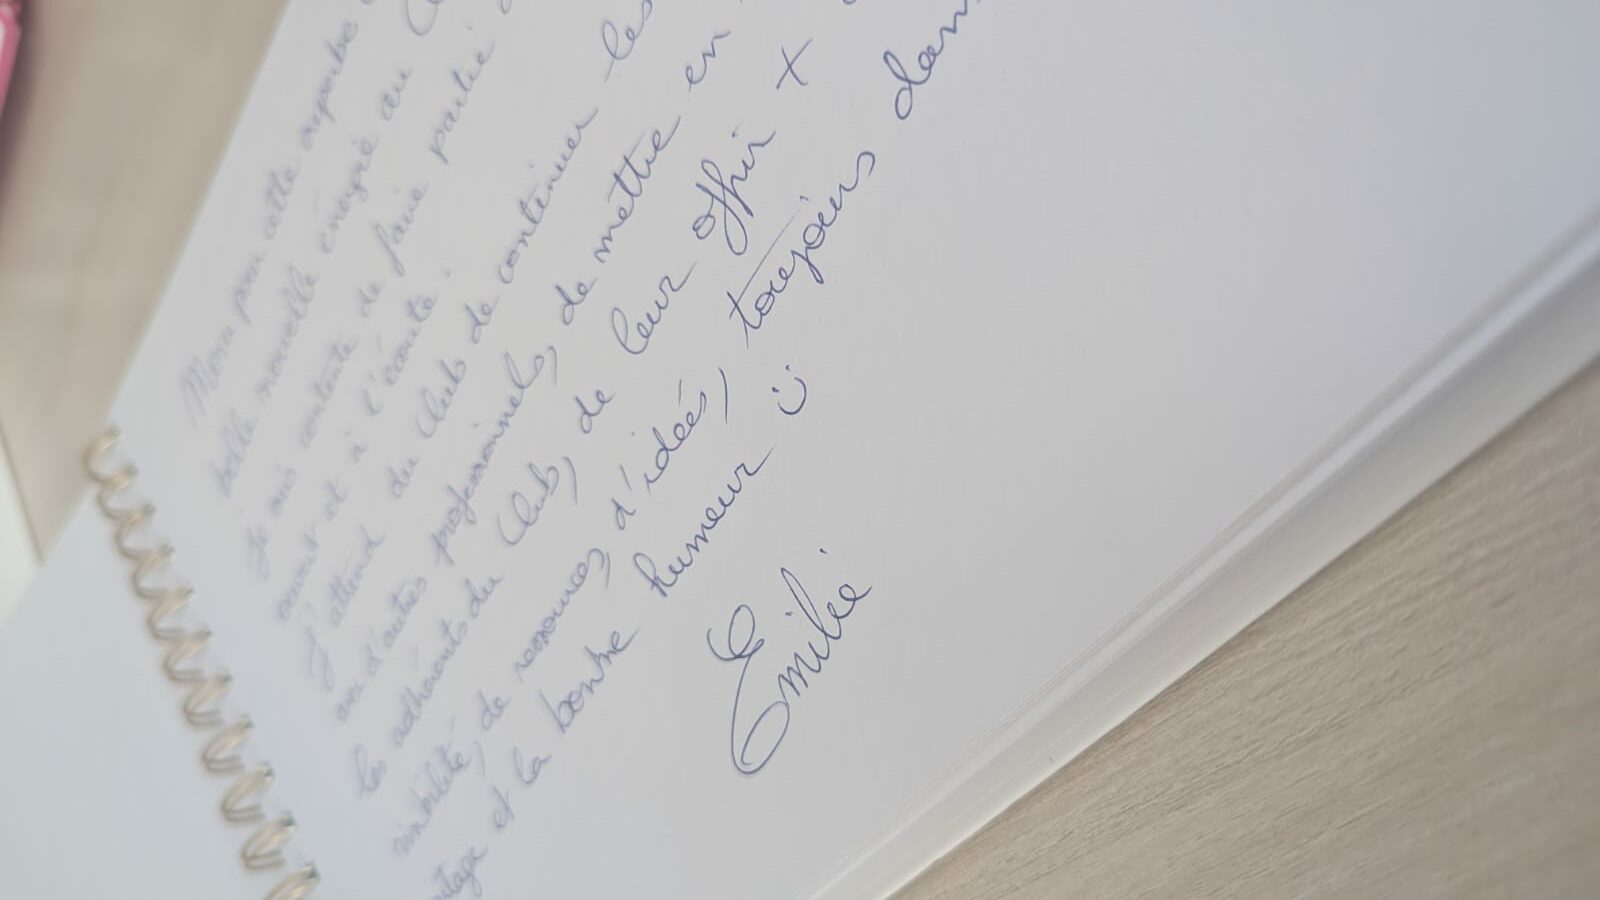 Merci pour cette superbe
belle nouvelle énergie au
Je suis contente de faire partie
ouvert et à l'écoute.
J'attend du Club de continuer les
avec d'autres professionnels, de mettre en
les adhérents du Club, de leur offrir +
visibilité, de ressources, d'idées, toujours dans
et la bonne humeur :)
Emilie